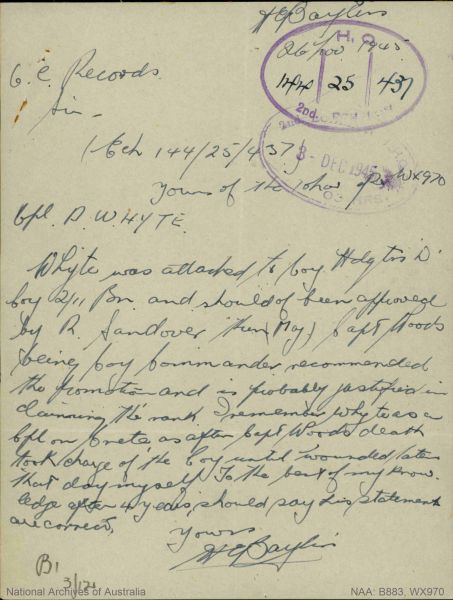 H E Bayliss
H.Q.
26 Nov 1945
144 25 437
2nd ECHELON
O/C Records
Sir
(Ech 144/25/437)
3 - DEC 1945
Yours of the WX970
Cpl. D. WHYTE.
Whyte was attached to Coy Hdqtrs D
Coy 2/11 Bn. and should of been approved
by R. Sandover then (Maj) Capt Woods
being Coy Commander recommended
the promotion and is probably justified in
claiming the rank I remember Whyte as a
Cpl on Crete, as after Capt Woods death
took charge of the Coy until wounded later
that day myself. To the best of my know-
ledge after 4 years, should say his statements
are correct,
Yours
H E Bayliss
B1
3/12
National Archives of Australia
NAA: B883, WX970